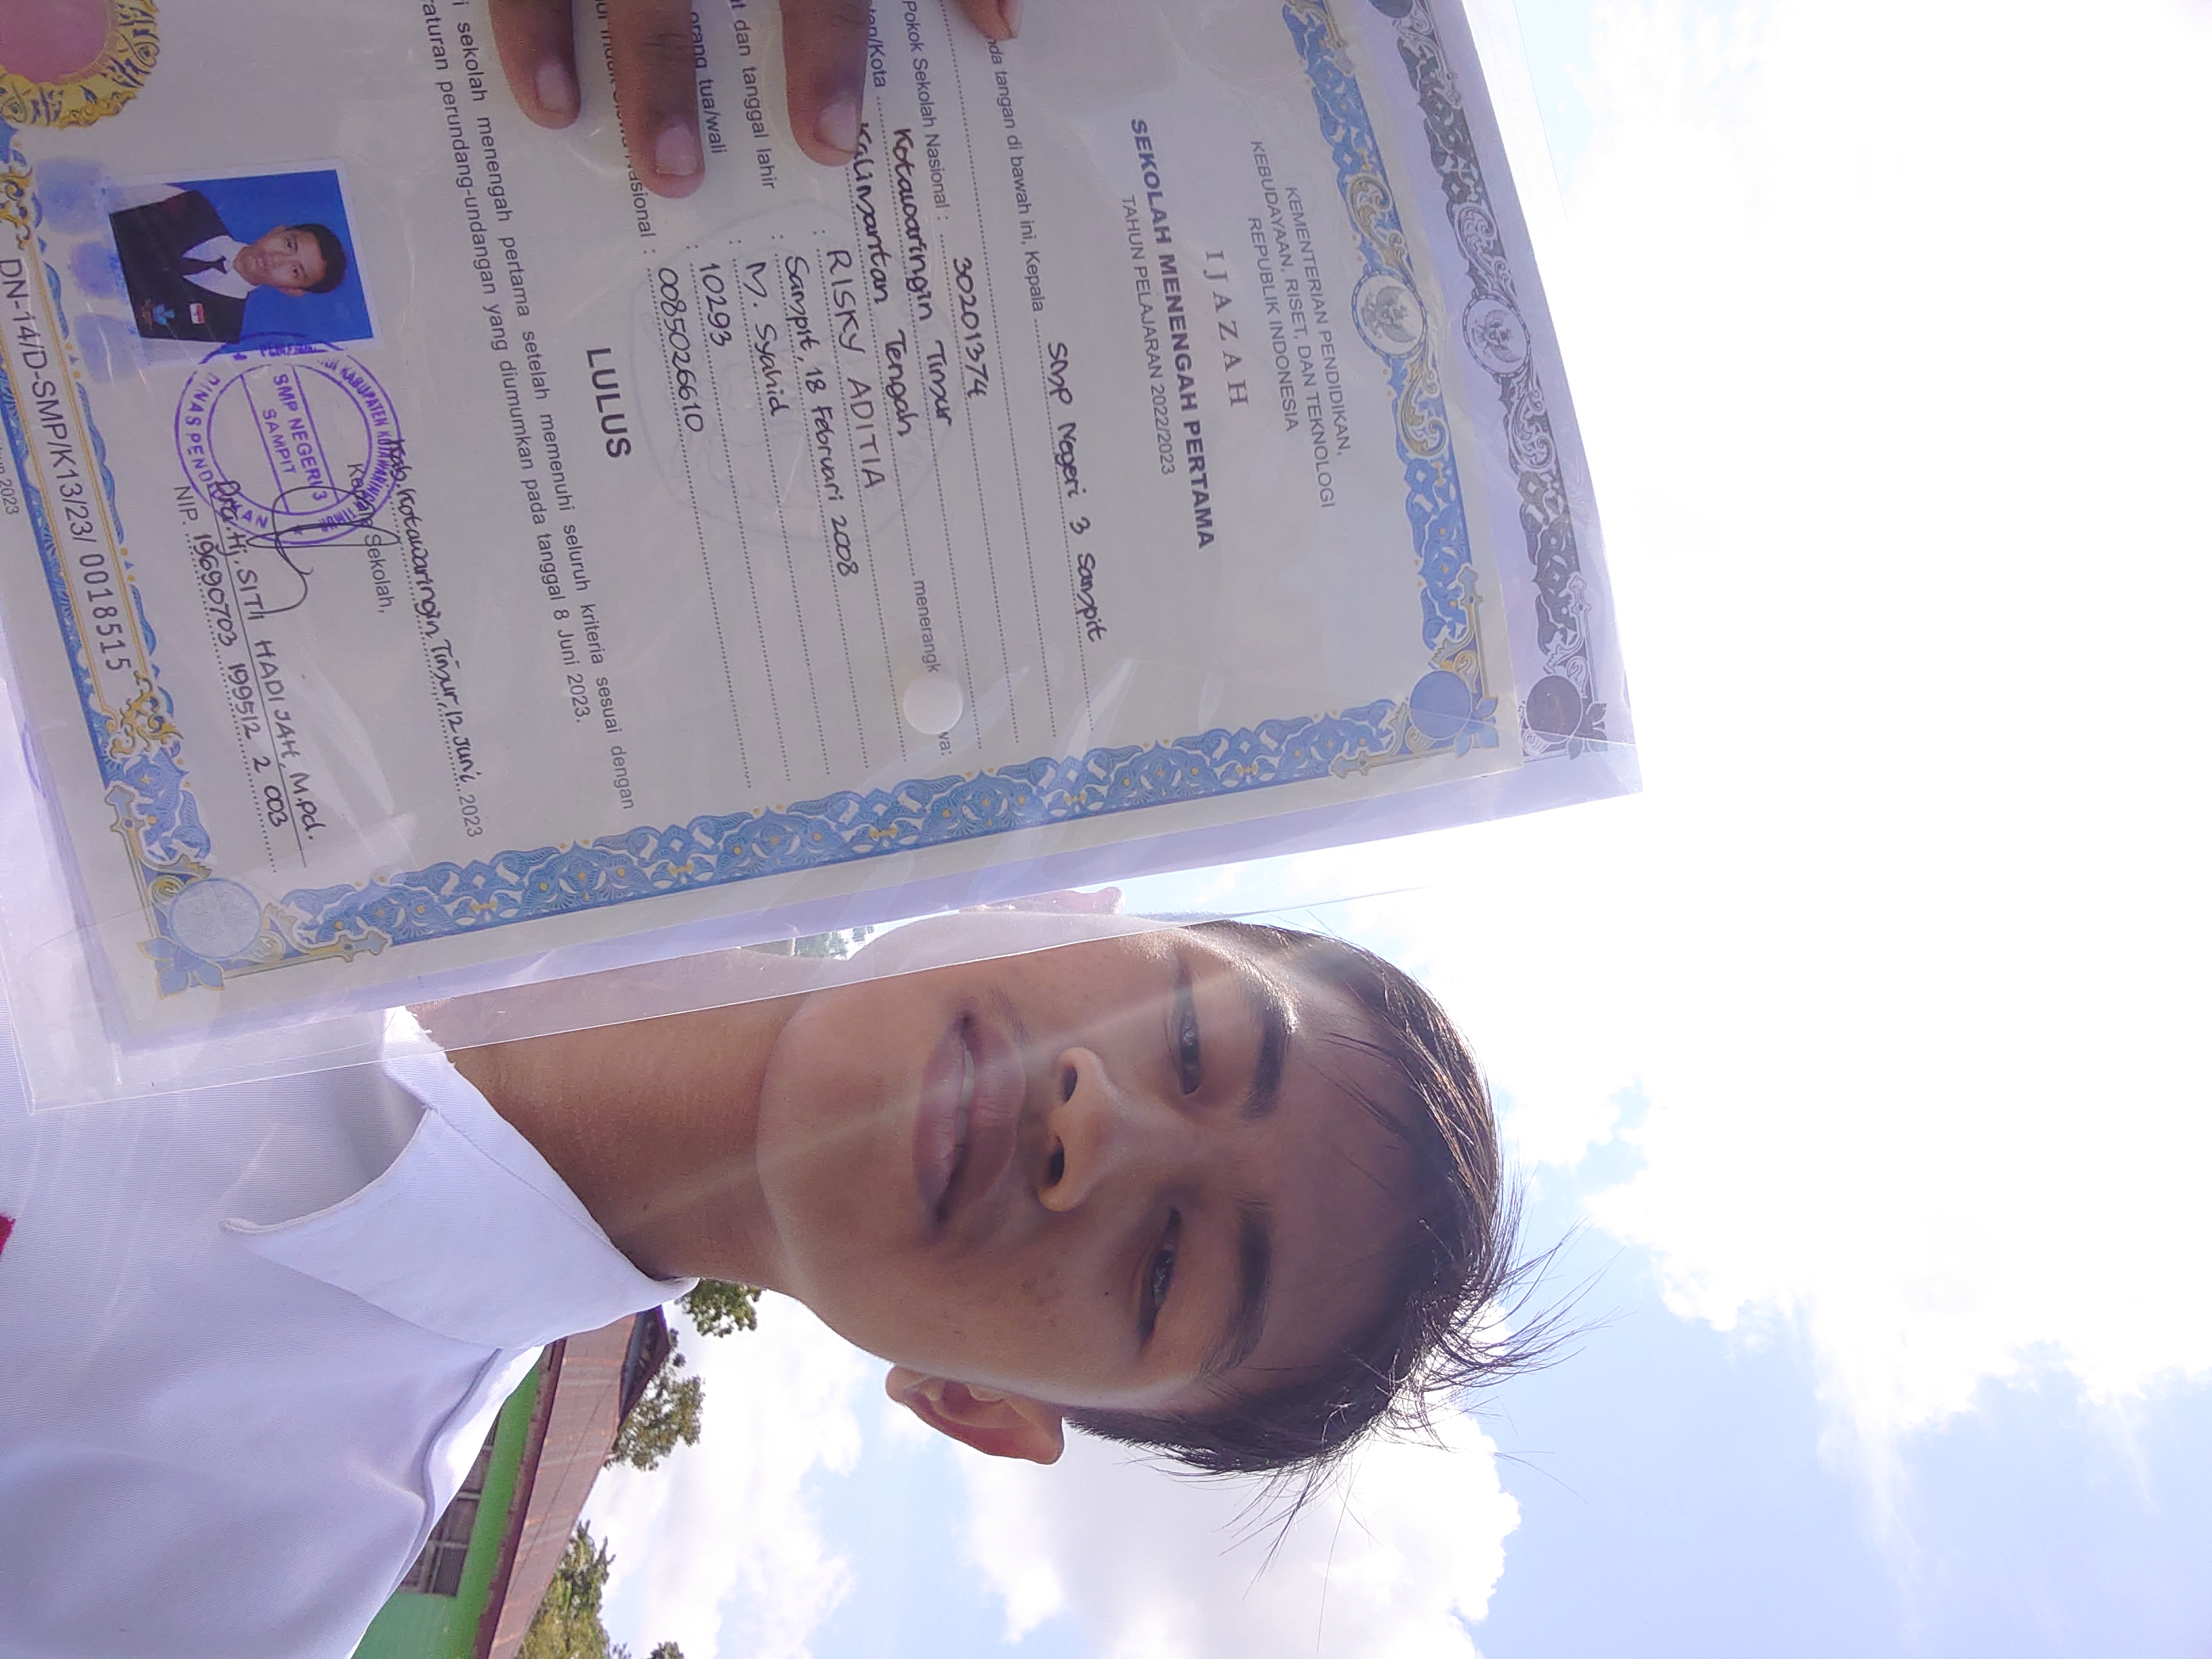 KEMENTERIAN PENDIDIKAN,
KEBUDAYAAN, RISET, DAN TEKNOLOGI
REPUBLIK INDONESIA
IJAZAH
SEKOLAH MENENGAH PERTAMA
TAHUN PELAJARAN 2022/2023
nda tangan di bawah ini, Kepala SMP Negeri 3 Sampit
Pokok Sekolah Nasional : 30201374
ten/Kota Kotawaringin Timur
Kalimantan Tengah menerangk wa:
: RISKY ADITIA
t dan tanggal lahir : Sampit, 18 Februari 2008
orang tua/wali : M. Syahid
: 10293
Nasional : 0085026610
LULUS
i sekolah menengah pertama setelah memenuhi seluruh kriteria sesuai dengan
raturan perundang-undangan yang diumumkan pada tanggal 8 Juni 2023.
Kab. Kotawaringin Timur, 12 Juni 2023
Kepala Sekolah,
KABUPATEN KOTAWARINGIN TIMUR
SMP NEGERI 3
SAMPIT
DINAS PENDIDIKAN
Dra. Hj. SITI HADIJAH, M.Pd.
NIP. 19690703 199512 2 003
DN-14/D-SMP/K13/23/ 0018515
2023